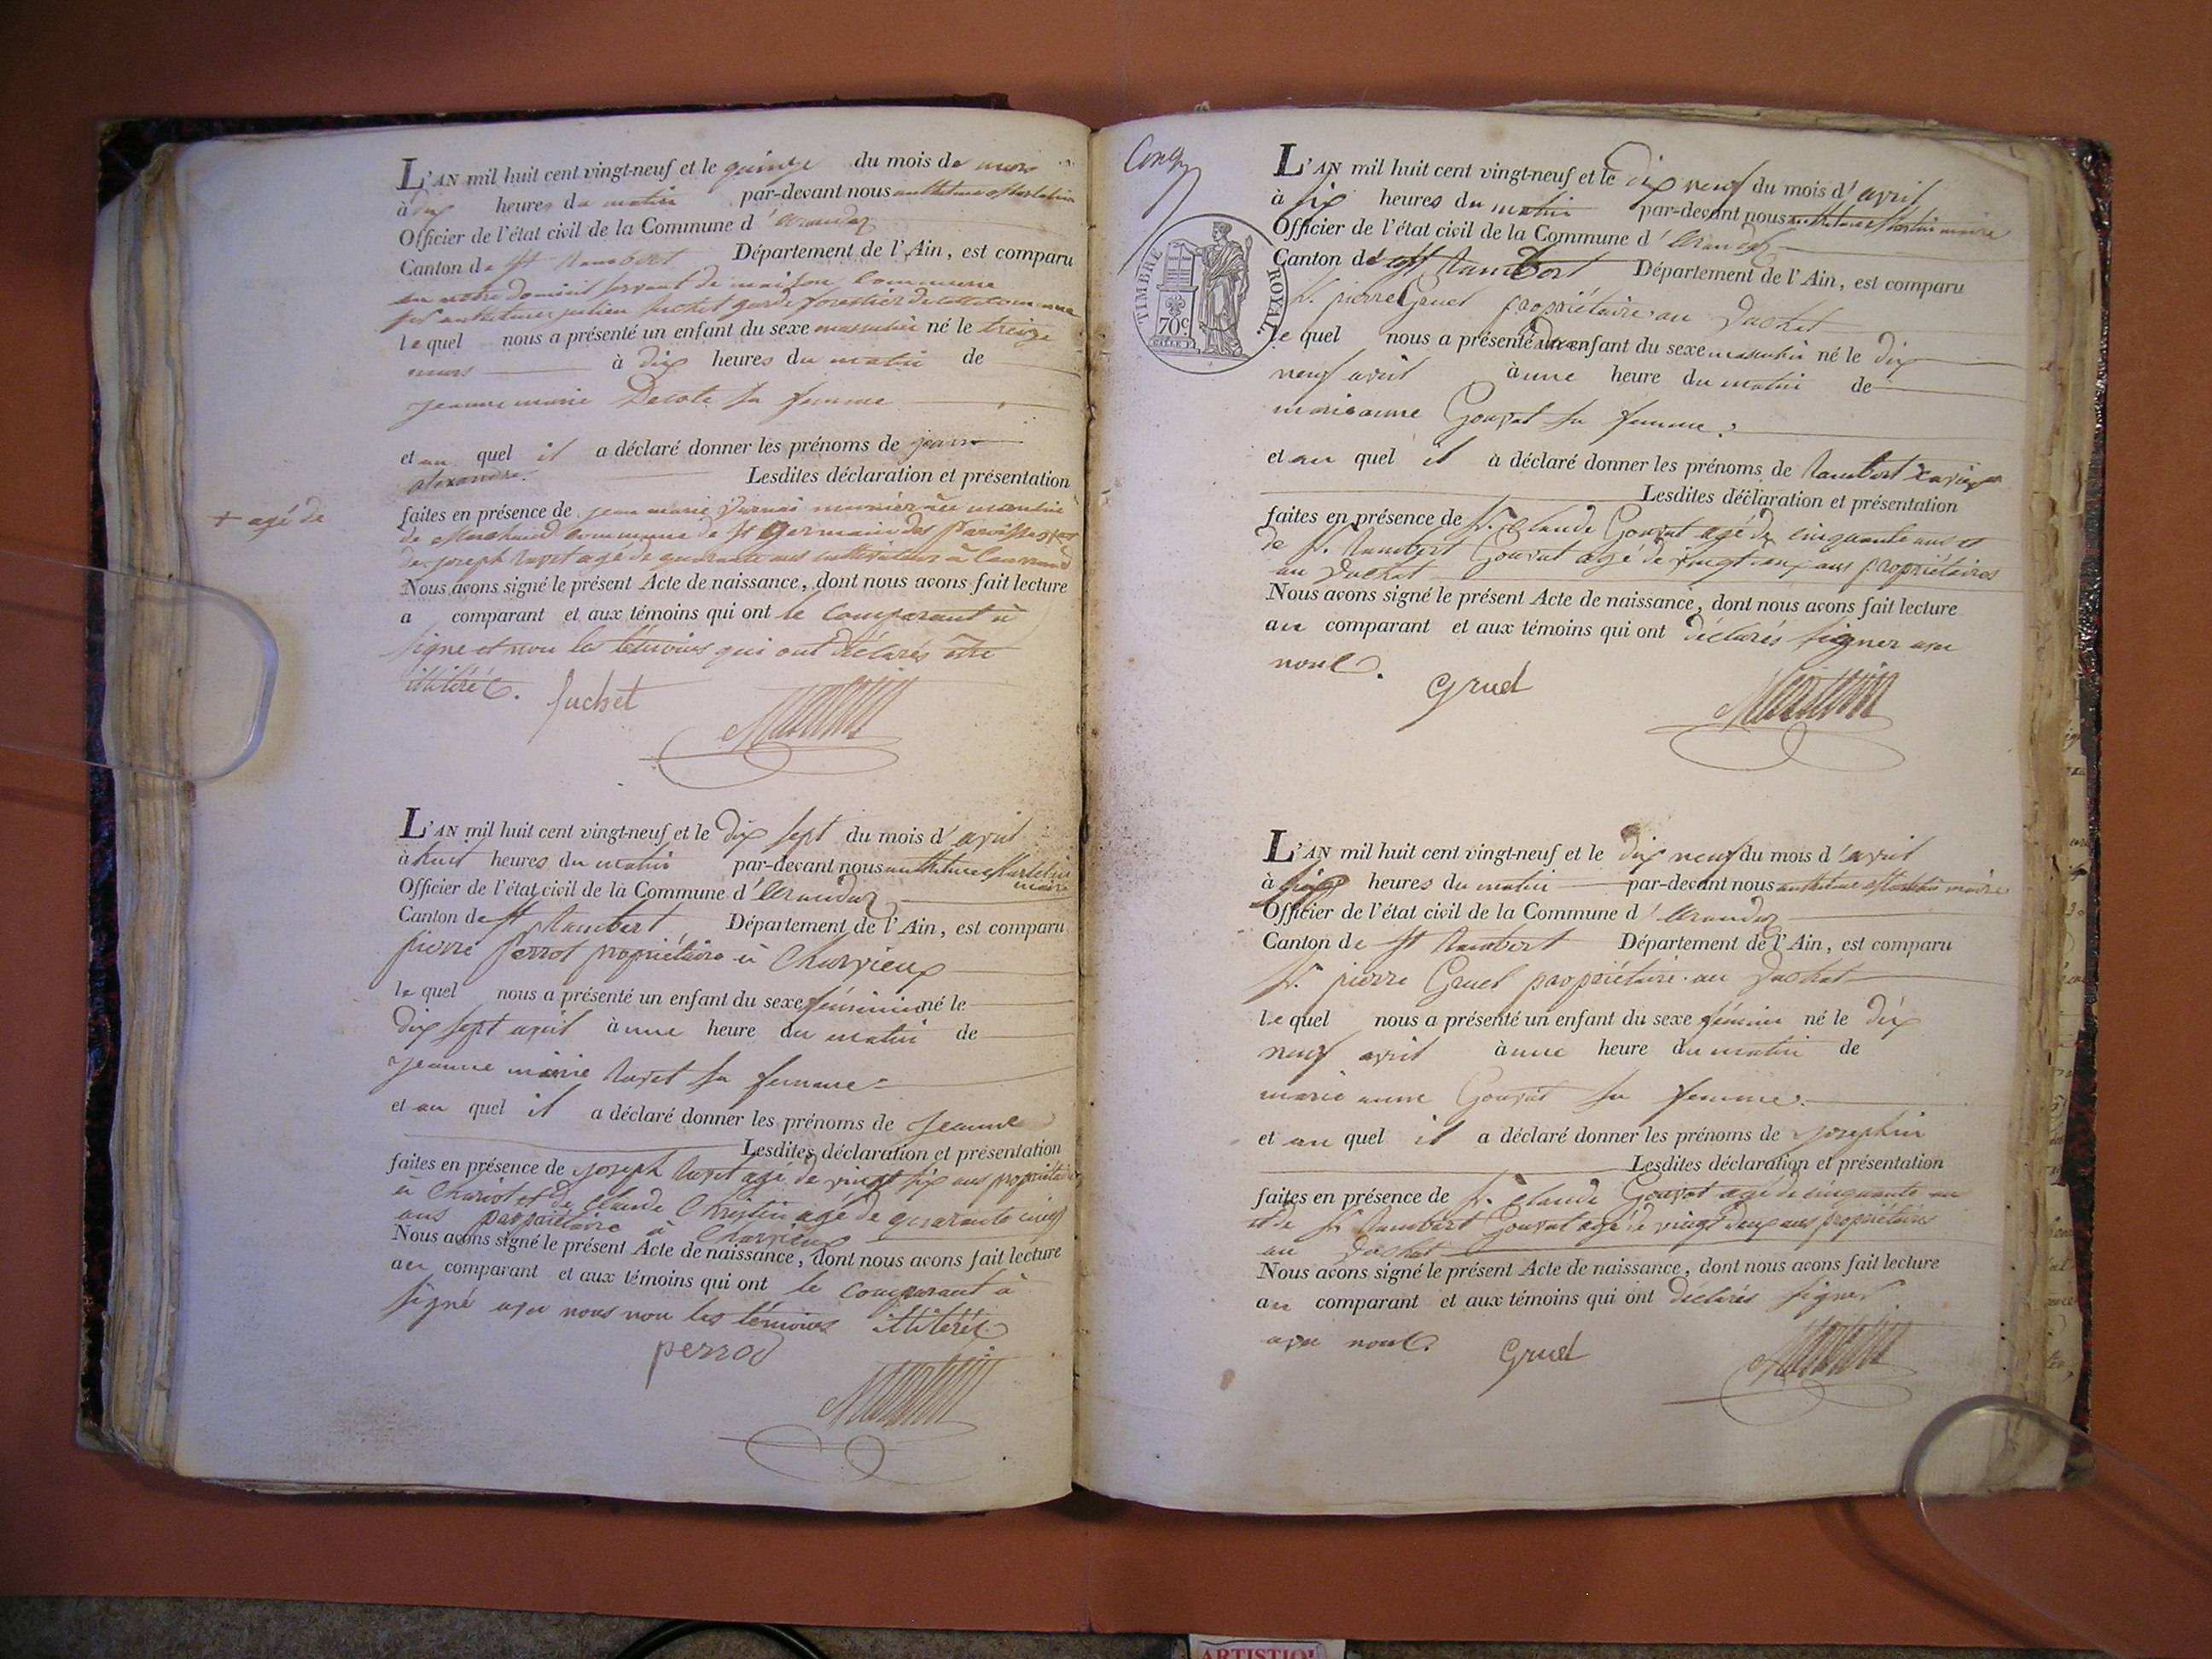 L'AN mil huit cent vingt-neuf et le quinze du mois de mars
à dix heures du matin par-devant nous anthelme Martin
Officier de l'état civil de la Commune d'arandas
Canton de St Rambert Département de l'Ain, est comparu
en notre domicil servant de maison Commune
julien juchet garde forestier de cette commune
lequel nous a présenté un enfant du sexe masculin né le treize
mars à dix heures du matin de
jeanne marie sa femme
et au quel il a déclaré donner les prénoms de jean
alexandre. Lesdites déclaration et présentation
+ agé de
faites en présence de jean marie munier au moulin
de commune de St Germain les Paroisses +et
de joseph ravet agé de quarante ans cultivateur à
Nous avons signé le présent Acte de naissance, dont nous avons fait lecture
a comparant et aux témoins qui ont le comparant à
signé et non les témoins qui ont déclarés être
illitéré.
juchet
Martin
L'AN mil huit cent vingt-neuf et le dix sept du mois d'avril
à huit heures du matin par-devant nous anthelme Martin
maire
Officier de l'état civil de la Commune d'arandas
Canton de St Rambert Département de l'Ain, est comparu
pierre perrot propriétaire à Charvieux
le quel nous a présenté un enfant du sexe féminin né le
dix sept avril à une heure du matin de
jeanne marie ravet sa femme
et au quel il a déclaré donner les prénoms de jeanne
Lesdites déclaration et présentation
faites en présence de joseph ravet agé de vingt six ans propriétaire
à et de Claude Chrestin agé de quarante cinq
ans propriétaire à Charvieux
Nous avons signé le présent Acte de naissance, dont nous avons fait lecture
au comparant et aux témoins qui ont le comparant à
signé avec nous non les témoins illitéré
perrod
Martin
TIMBRE ROYAL
70c
L'AN mil huit cent vingt-neuf et le dix neuf du mois d'avril
à six heures du matin par-devant nous anthelme Martin maire
Officier de l'état civil de la Commune d'arandas
Canton de St Rambert Département de l'Ain, est comparu
Sr. pierre Gruel propriétaire au Pachat
le quel nous a présenté un enfant du sexe masculin né le dix
neuf avril à une heure du matin de
marie anne Gouvat sa femme
et au quel il a déclaré donner les prénoms de Rambert xavier
Lesdites déclaration et présentation
faites en présence de Sr. Claude Gouvat agé de cinquante ans et
de Sr. Rambert Gouvat agé de vingt deux ans propriétaires
au Pachat
Nous avons signé le présent Acte de naissance, dont nous avons fait lecture
au comparant et aux témoins qui ont déclarés signer avec
nous.
Gruel
Martin
L'AN mil huit cent vingt-neuf et le dix neuf du mois d'avril
à heures du matin par-devant nous anthelme Martin maire
Officier de l'état civil de la Commune d'arandas
Canton de St Rambert Département de l'Ain, est comparu
Sr. pierre Gruel propriétaire au Pachat
le quel nous a présenté un enfant du sexe féminin né le dix
neuf avril à une heure du matin de
marie anne Gouvat sa femme
et au quel il a déclaré donner les prénoms de josephin
Lesdites déclaration et présentation
faites en présence de Sr. Claude Gouvat agé de cinquante an
et de Sr Rambert Gouvat agé de vingt deux ans propriétaires
au Pachat
Nous avons signé le présent Acte de naissance, dont nous avons fait lecture
au comparant et aux témoins qui ont déclarés signer
avec nous.
Gruel
Martin